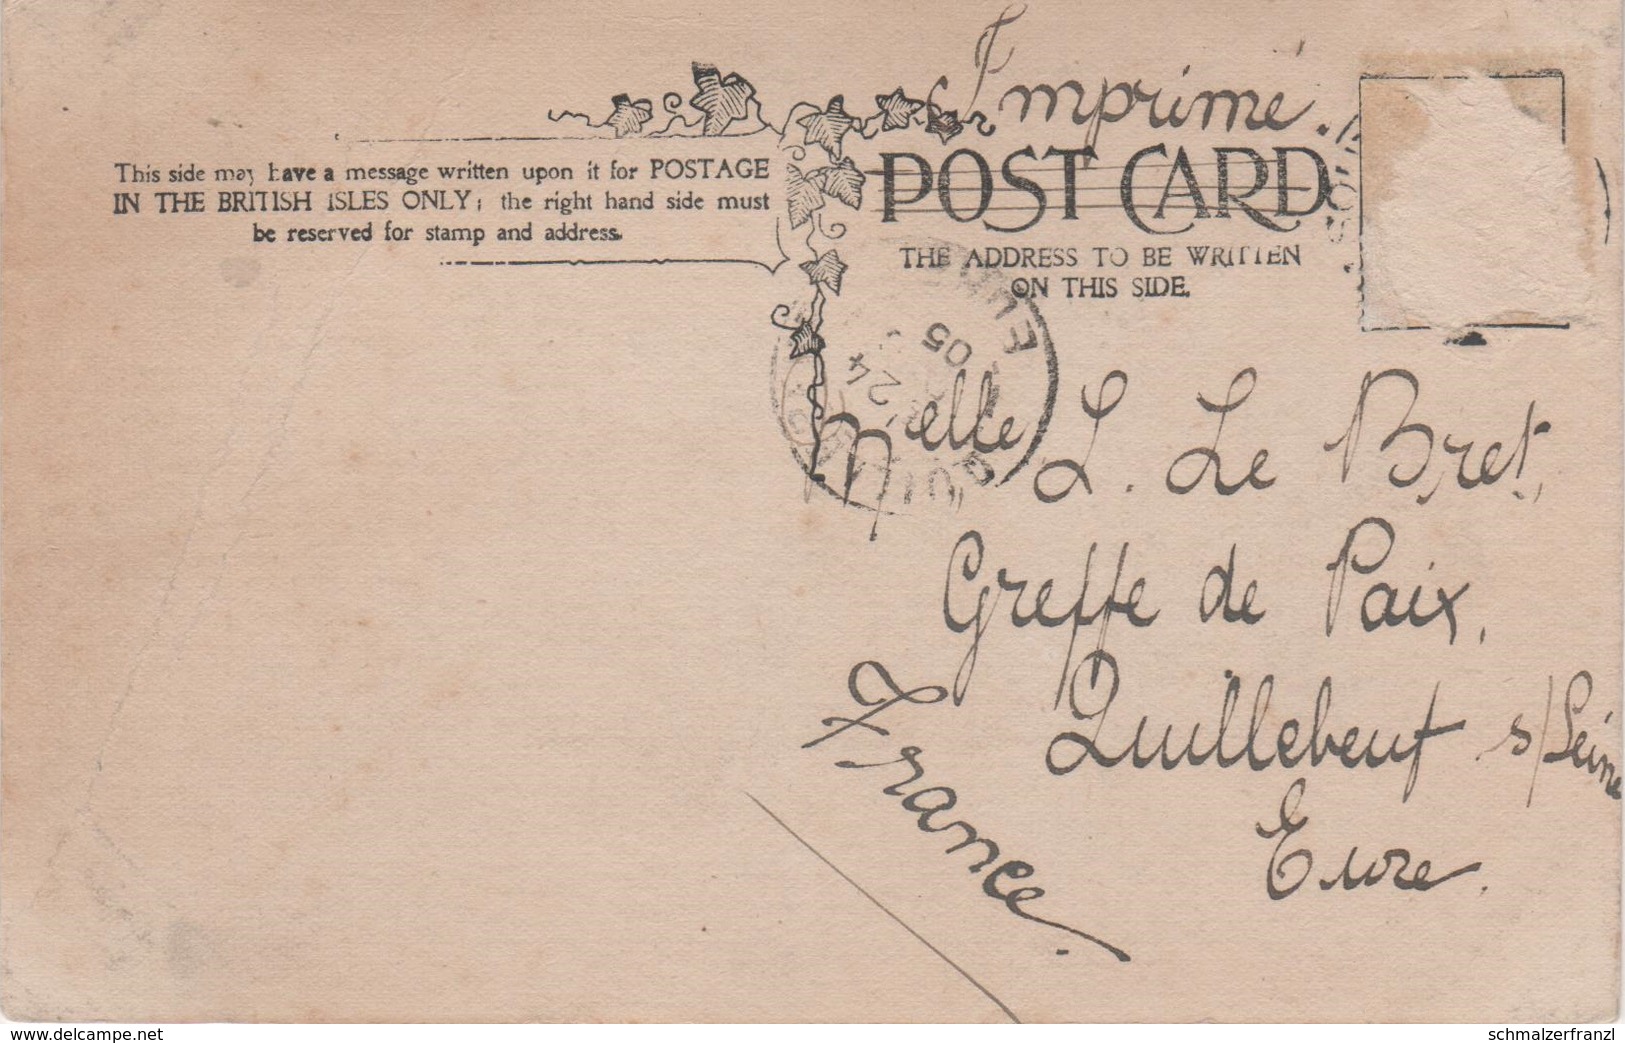 Imprimé.
This side may have a message written upon it for POSTAGE
IN THE BRITISH ISLES ONLY; the right hand side must
be reserved for stamp and address.
POST CARD
THE ADDRESS TO BE WRITTEN
ON THIS SIDE.
EURE
24
05
Melle L. Le Bret,
Greffe de Paix,
Quillebeuf s/Seine
Eure.
France.
www.delcampe.net
schmalzerfranzl